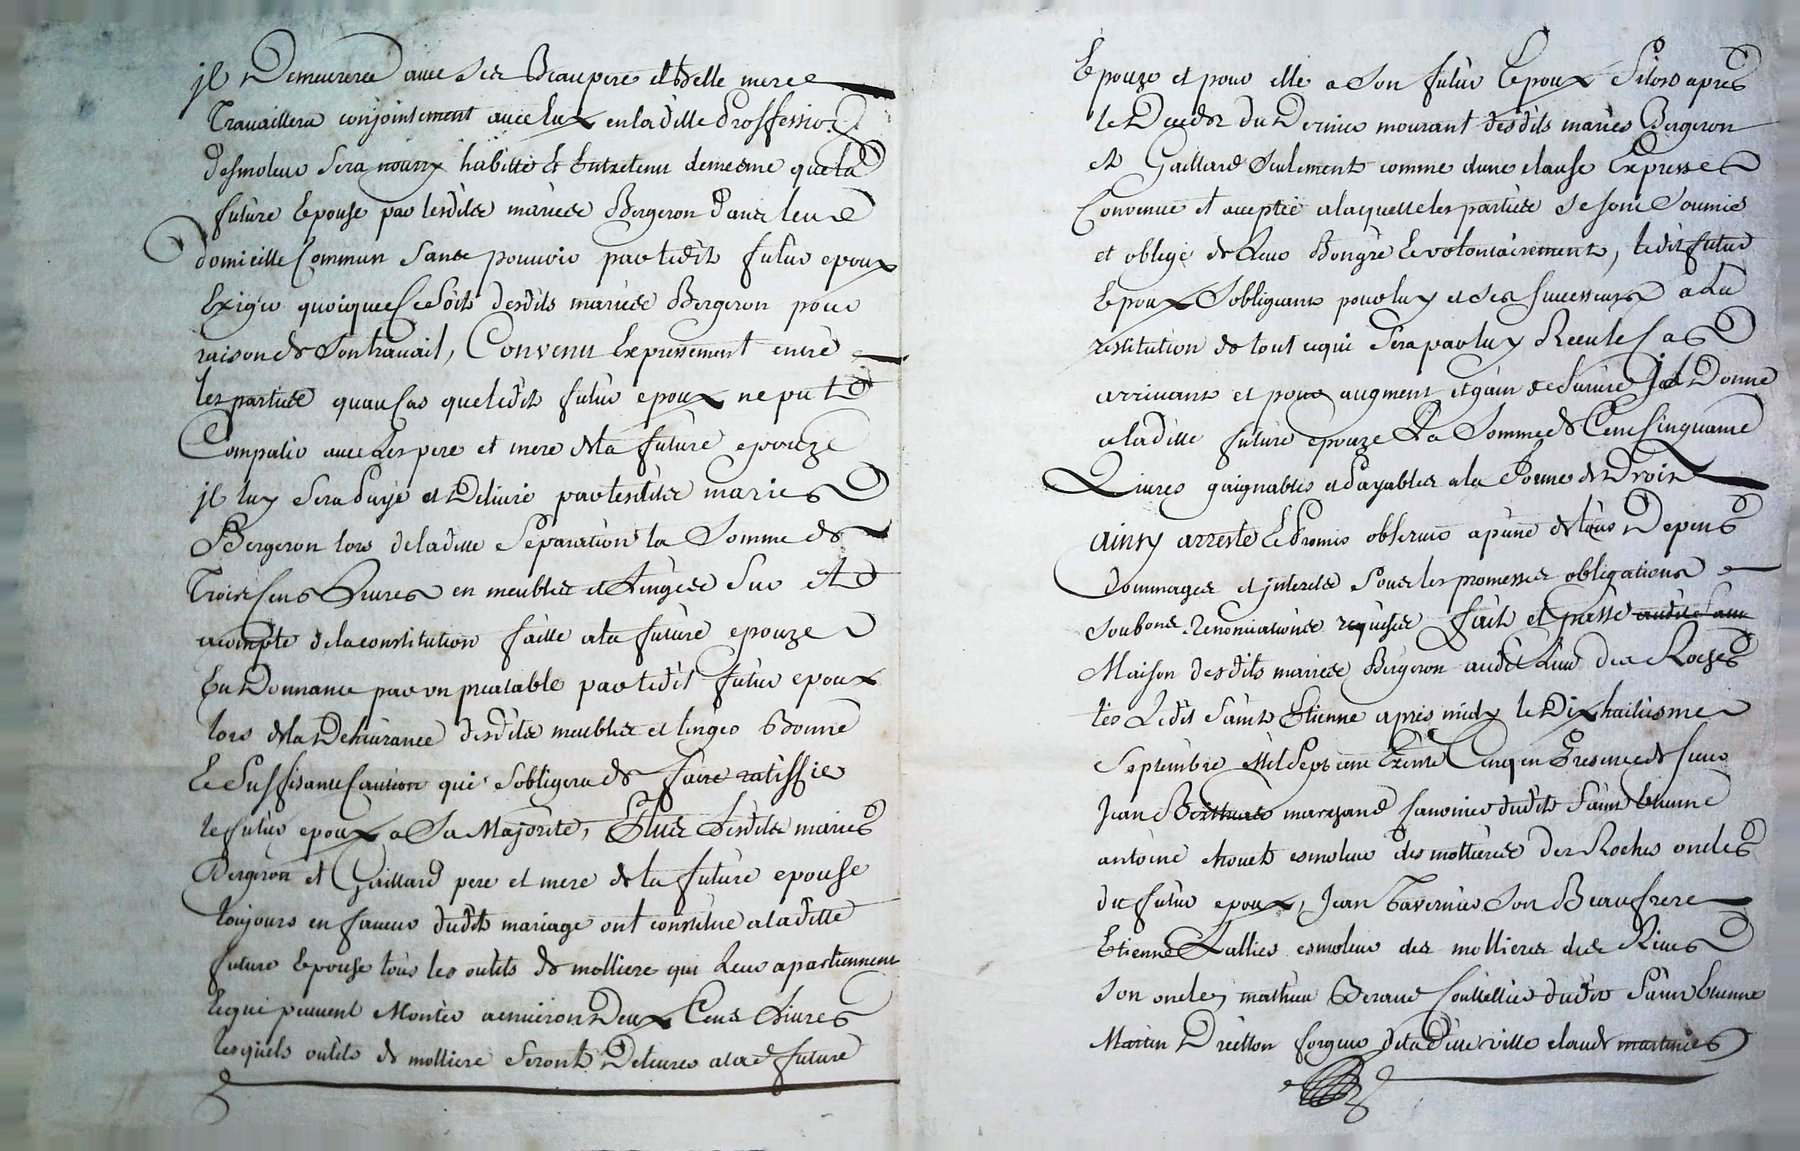 jl Demeurera avec ses Beaupere et Belle mere
Travaillera conjointement avec lux en ladille Proffession
desmoleur sera nourry habillé Et Entretenu demesme que la
future Epouse par lesdits mariés Bergeron Dans leur
domicille Commun sans pouvoir par ledit futur epoux
Exiger quoique Ce soit desdits mariés Bergeron pour
raison de son travail, Convenu Expressement entre
les parties quau Cas que ledit futur epoux ne put
Compatir avec Les pere et mere de la future epouze
jl luy sera paye et Delivré par lesdits maries
Bergeron lors de ladille Separation la Somme de
Trois Cens Livres en meubles et Linges Sur et
acompte de la constitution faille a la future epouze
En Donnant par un prealable par ledit futur epoux
lors de la Delivrance desdits meubles et linges Bonne
Et Suffisante Caution qui sobligera de faire ratiffier
le futur epoux a Sa Majorité, Plus Lesdits maries
Bergeron et Gaillard pere et mere de la future epouse
toujours en faveur dudit mariage ont constitué a ladille
future Epouse tous les outils de molliere qui Leur apartiennent
Et qui peuvent Monter a environ Deux Cens Livres
lesquels outils de molliere seront Delivres a lad future
Epouze et pour elle a Son futur Epoux Sitost apres
le Deceds du Dernier mourant desdits mariés Bergeron
et Gaillard Seulement comme dune clause Expresse
Convenue et acceptée a laquelle les parties se sont Soumis
et obligé de Leur Bongré Et volontairement, ledit futur
Epoux Sobligeant pour luy et ses Successeurs a la
restitution de tout ce qui sera par luy Receu le Cas
arrivant et pour augment et gain de Survie jl Donne
a ladille future epouze La Somme de Cent Cinquante
Livres gaignables et payables a la forme de Droit
ainsy arresté Et Promis observer a peine de tous Depens
dommages et jnterets Sous les promesses obligations
Soubons. Renonciations requises fait et passé
Maison desdits mariés Bergeron audit Lieu des Roches
les Ledit Saint Etienne apres midy le Dix huitiesme
Septembre Mil Sept cens Trente Cinq en Presence de sieur
Jean marchand Canonier dudit Saint Etienne
antoine esmoleur des mollieres des Roches oncles
du futur epoux, Jean Tavernier Son Beaufrere
Etienne Lallier esmoleur des mollieres des Rives
Son oncle, mathieu Beraud Couttellier dudit Saint Etienne
Martin Dreillon forgeur de ladille ville claude martinier